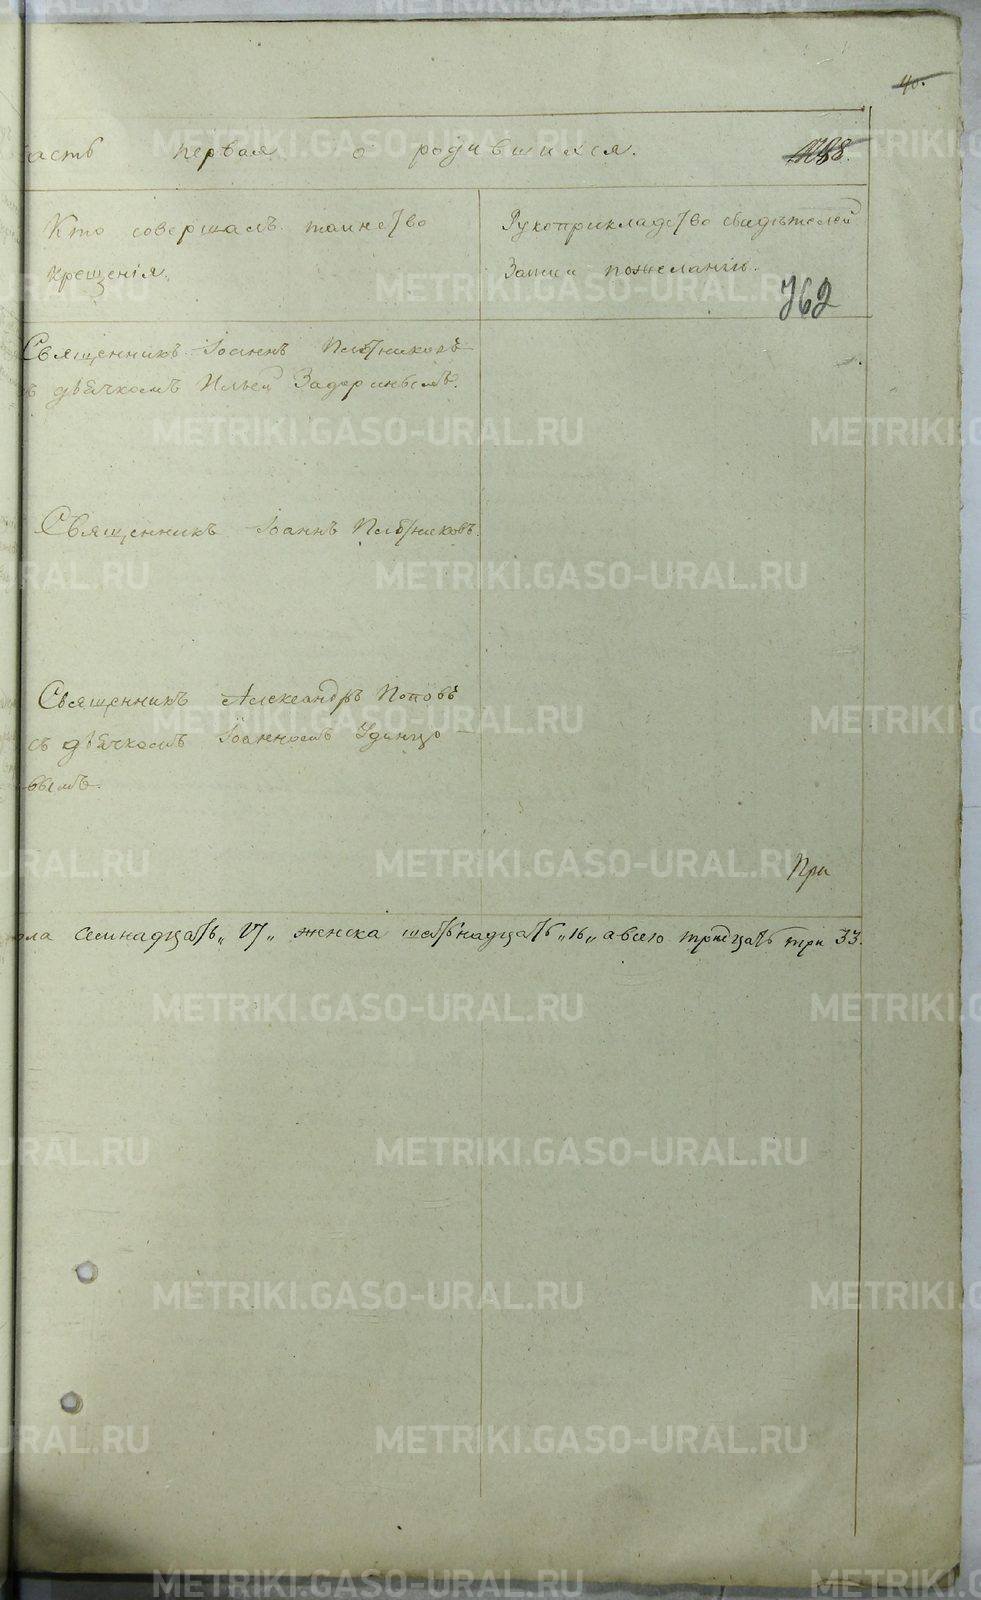 40.
асть первая о родившихся.
Кто совершалъ таинство
крещенія.
Рукоприкладство свидѣтелей
записи по желанію.
762
Священникъ Іоаннъ Плотниковъ
съ дьячкомъ Ильей Задоринымъ.
Священникъ Іоаннъ Плотниковъ.
Священникъ Александръ Поповъ
съ дьячкомъ Іоанномъ Удинцо-
вымъ.
При
ола семнадцать „17„ женска шестьнадцать „16„ а всего тридцать три 33.
METRIKI.GASO-URAL.RU